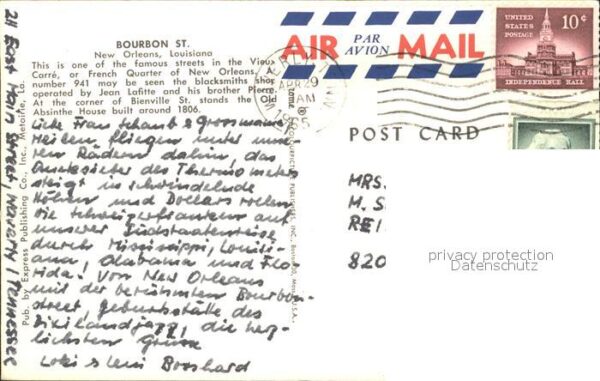 BOURBON ST.
New Orleans, Louisiana
This is one of the famous streets in the Vieux
Carré, or French Quarter of New Orleans. At
number 941 may be seen the blacksmiths shop
operated by Jean Lafitte and his brother Pierre.
At the corner of Bienville St. stands the Old
Absinthe House built around 1806.
Liebe Frau
Meilen fliegen unter unse-
ren Rädern dahin, das
Quecksilber des Thermometers
steigt in schwindelnde
Höhen und Dollars rollen
wie Schweizerfranken auf
unserer Südstaatenreise
durch Mississippi, Louisi-
ana, Alabama und Flo-
rida. Von New Orleans
mit der berühmten Bourbon-
street, Geburtsstätte des
Dixilandjazz, die herz-
lichsten Grüsse
Boshard
24 East Main Street, Waverly, Tennessee
Pub. by Express Publishing Co., Inc., Metairie, La.
AIR MAIL
PAR
AVION
UNITED
STATES
POSTAGE
10¢
INDEPENDENCE HALL
APR 29
AM
1965
POST CARD
MRS.
M. S
REI
820
privacy protection
Datenschutz